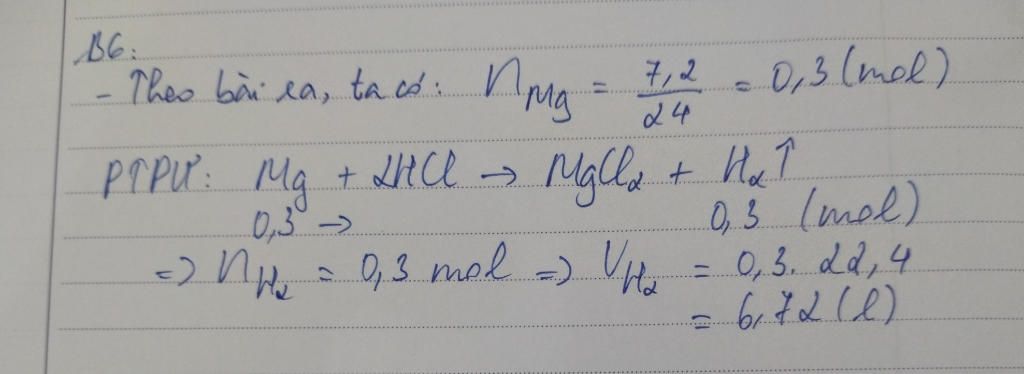 B6:
- Theo bài ra, ta có: n_Mg = 7,2/24 = 0,3 (mol)
PTPƯ: Mg + 2HCl → MgCl₂ + H₂↑
0,3 → 0,3 (mol)
=> n_H₂ = 0,3 mol => V_H₂ = 0,3. 22,4
= 6,72 (l)